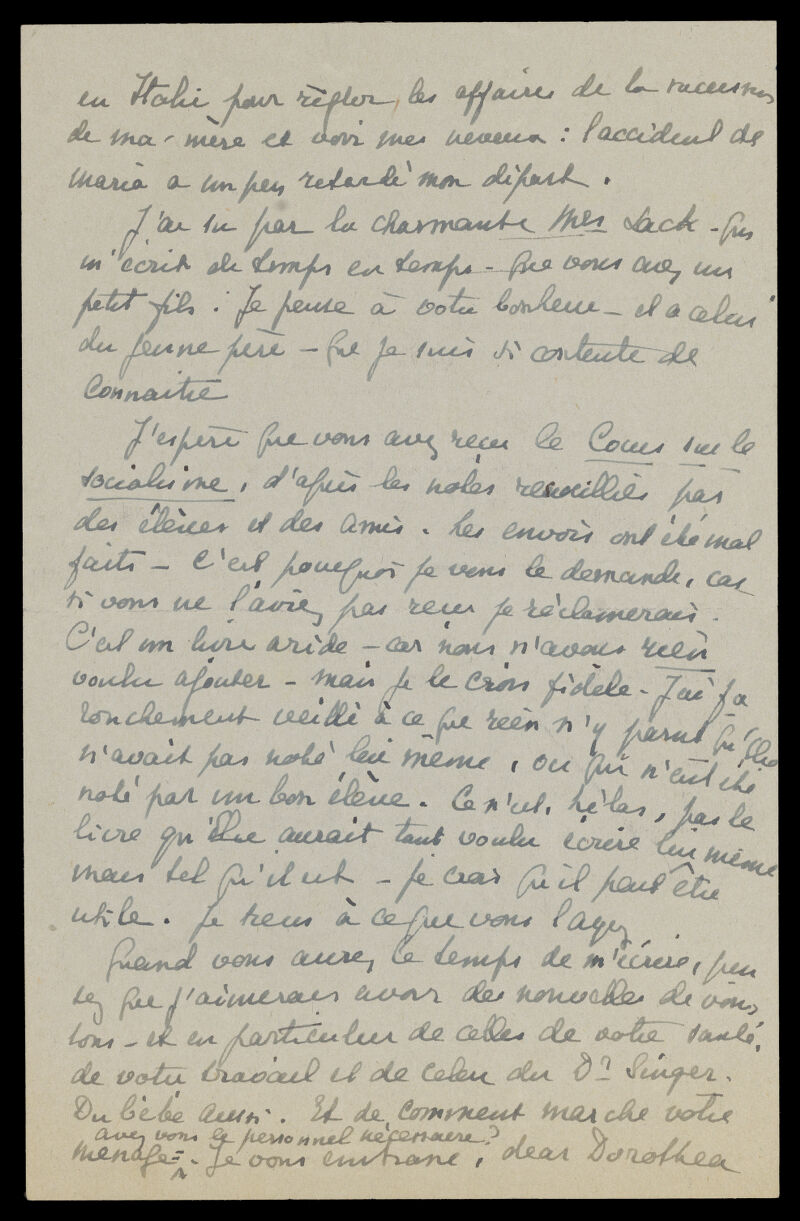 en Italie pour régler les affaires de la succession
de ma mère et voir mes neveux : l'accident de
Maria a un peu retardé mon départ.
J'ai su par la charmante Mrs Lack - qui
m'écrit de temps en temps - que vous avez un
petit fils. Je pense à votre bonheur - et a celui
du jeune père - que je suis si contente de
connaitre
J'espère que vous avez recu le Cours sur le
socialisme, d'après les notes recueillies par
des élèves et des amis. Les envois ont été mal
faits - C'est pourquoi je vous le demande, car
si vous ne l'aviez pas recu je réclamerais.
C'est un livre aride - car nous n'avons rien
voulu ajouter - mais je le crois fidèle - J'ai fa
rouchement veillé à ce que rien n'y parut qu'Elie
n'avait pas noté lui même, ou qui n'eut été
noté par un bon élève. Ce n'est, hélas, pas le
livre qu'Elie aurait tant voulu écrire lui même
mais tel qu'il est - je crois qu'il peut être
utile. Je tiens à ce que vous l'ayez
Quand vous aurez le temps de m'écrire, pen
sez que j'aimerais avoir des nouvelles de vous
tous - et en particulier de celles de votre santé,
de votre travail et de celui du Dr Singer.
Du bébé aussi. Et de comment marche votre
avez vous le personnel nécessaire?
menage - . Je vous embrasse, dear Dorothea